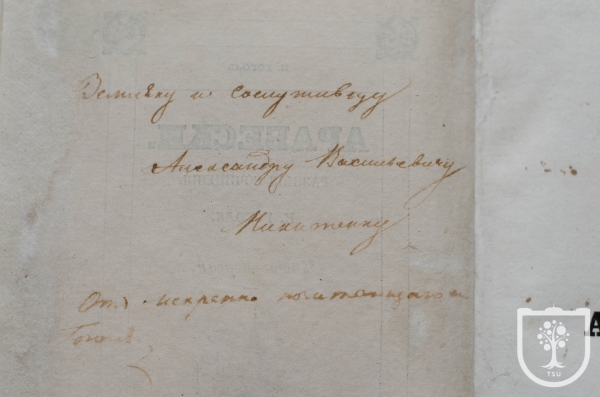 Земляку и сослуживцу
Александру Васильевичу
Никитенку
Отъ искренно почитающаго
Гоголя
TSU